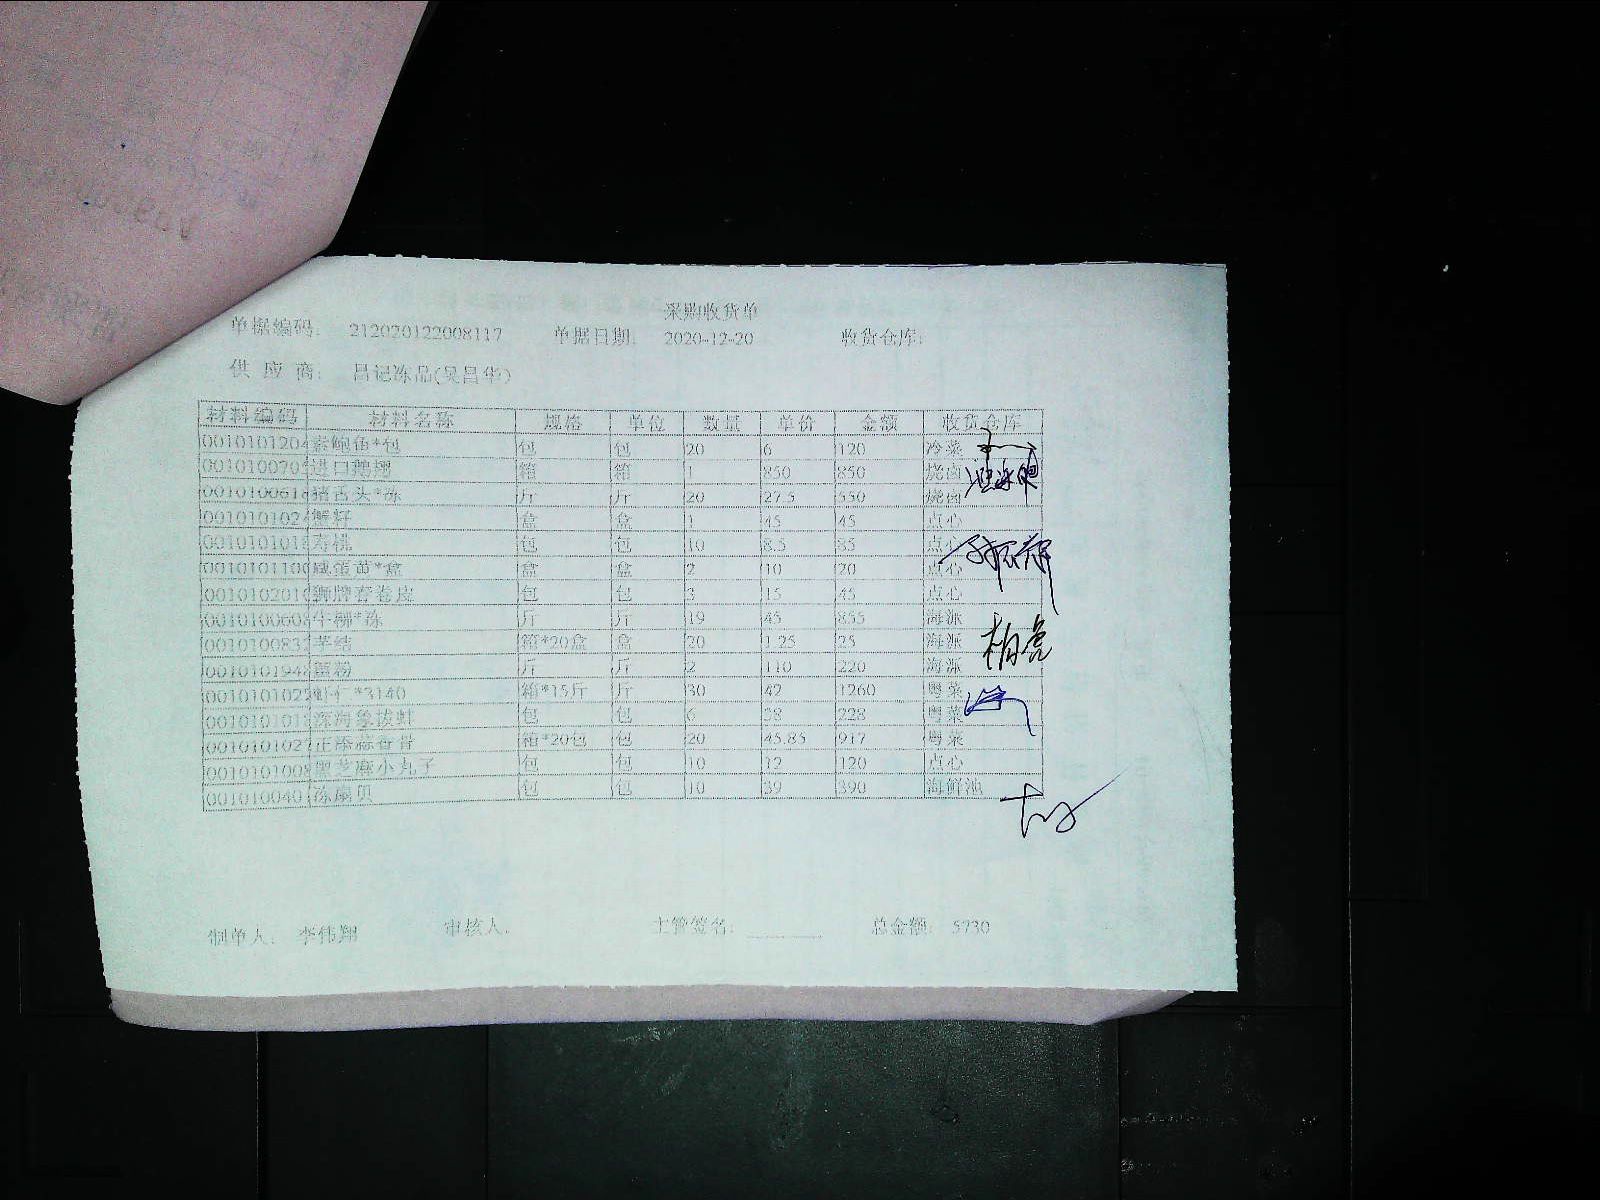 采购收货单
单据编码: 212020122008117 单据日期: 2020-12-20 收货仓库:
供 应 商: 吕记冻品(吴昌华)
材料编码 材料名称 规格 单位 数量 单价 金额 收货仓库
0010101204 素鲍鱼*包 包 包 20 6 120 冷菜
001010070 进口鹅翅 箱 箱 1 850 850 烧卤
001010061 猪舌头*冻 斤 斤 20 27.5 550 烧卤
001010102 蟹籽 盒 盒 1 45 45 点心
001010101 寿桃 包 包 10 8.5 85 点心
001010110 咸蛋黄*盒 盒 盒 2 10 20 点心
001010201 狮牌春卷皮 包 包 3 15 45 点心
001010060 牛柳*冻 斤 斤 19 45 855 海派
001010083 芋结 箱*20盒 盒 20 1.25 25 海派
001010194 蟹粉 斤 斤 2 110 220 海派
001010102 虾仁*3140 箱*15斤 斤 30 42 1260 粤菜
001010101 深海象拔蚌 包 包 6 38 228 粤菜
001010102 蒜香骨 箱*20包 包 20 45.85 917 粤菜
001010100 黑芝麻小丸子 包 包 10 12 120 点心
001010040 冻扇贝 包 包 10 39 390 海鲜池
柏亮
制单人: 李伟翔 审核人: 主管签名: 总金额: 5730